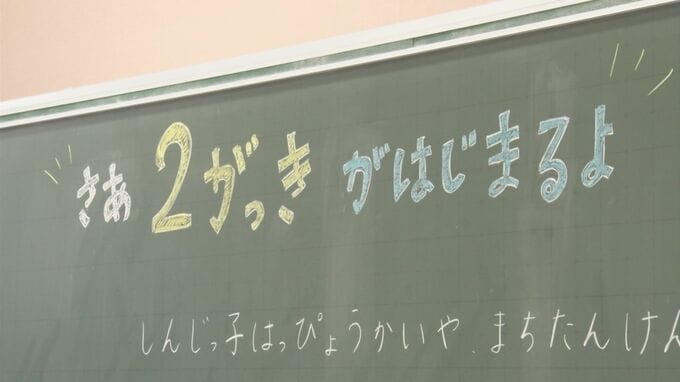 さあ2がっきがはじまるよ
しんじっ子はっぴょうかいや、まちたんけん